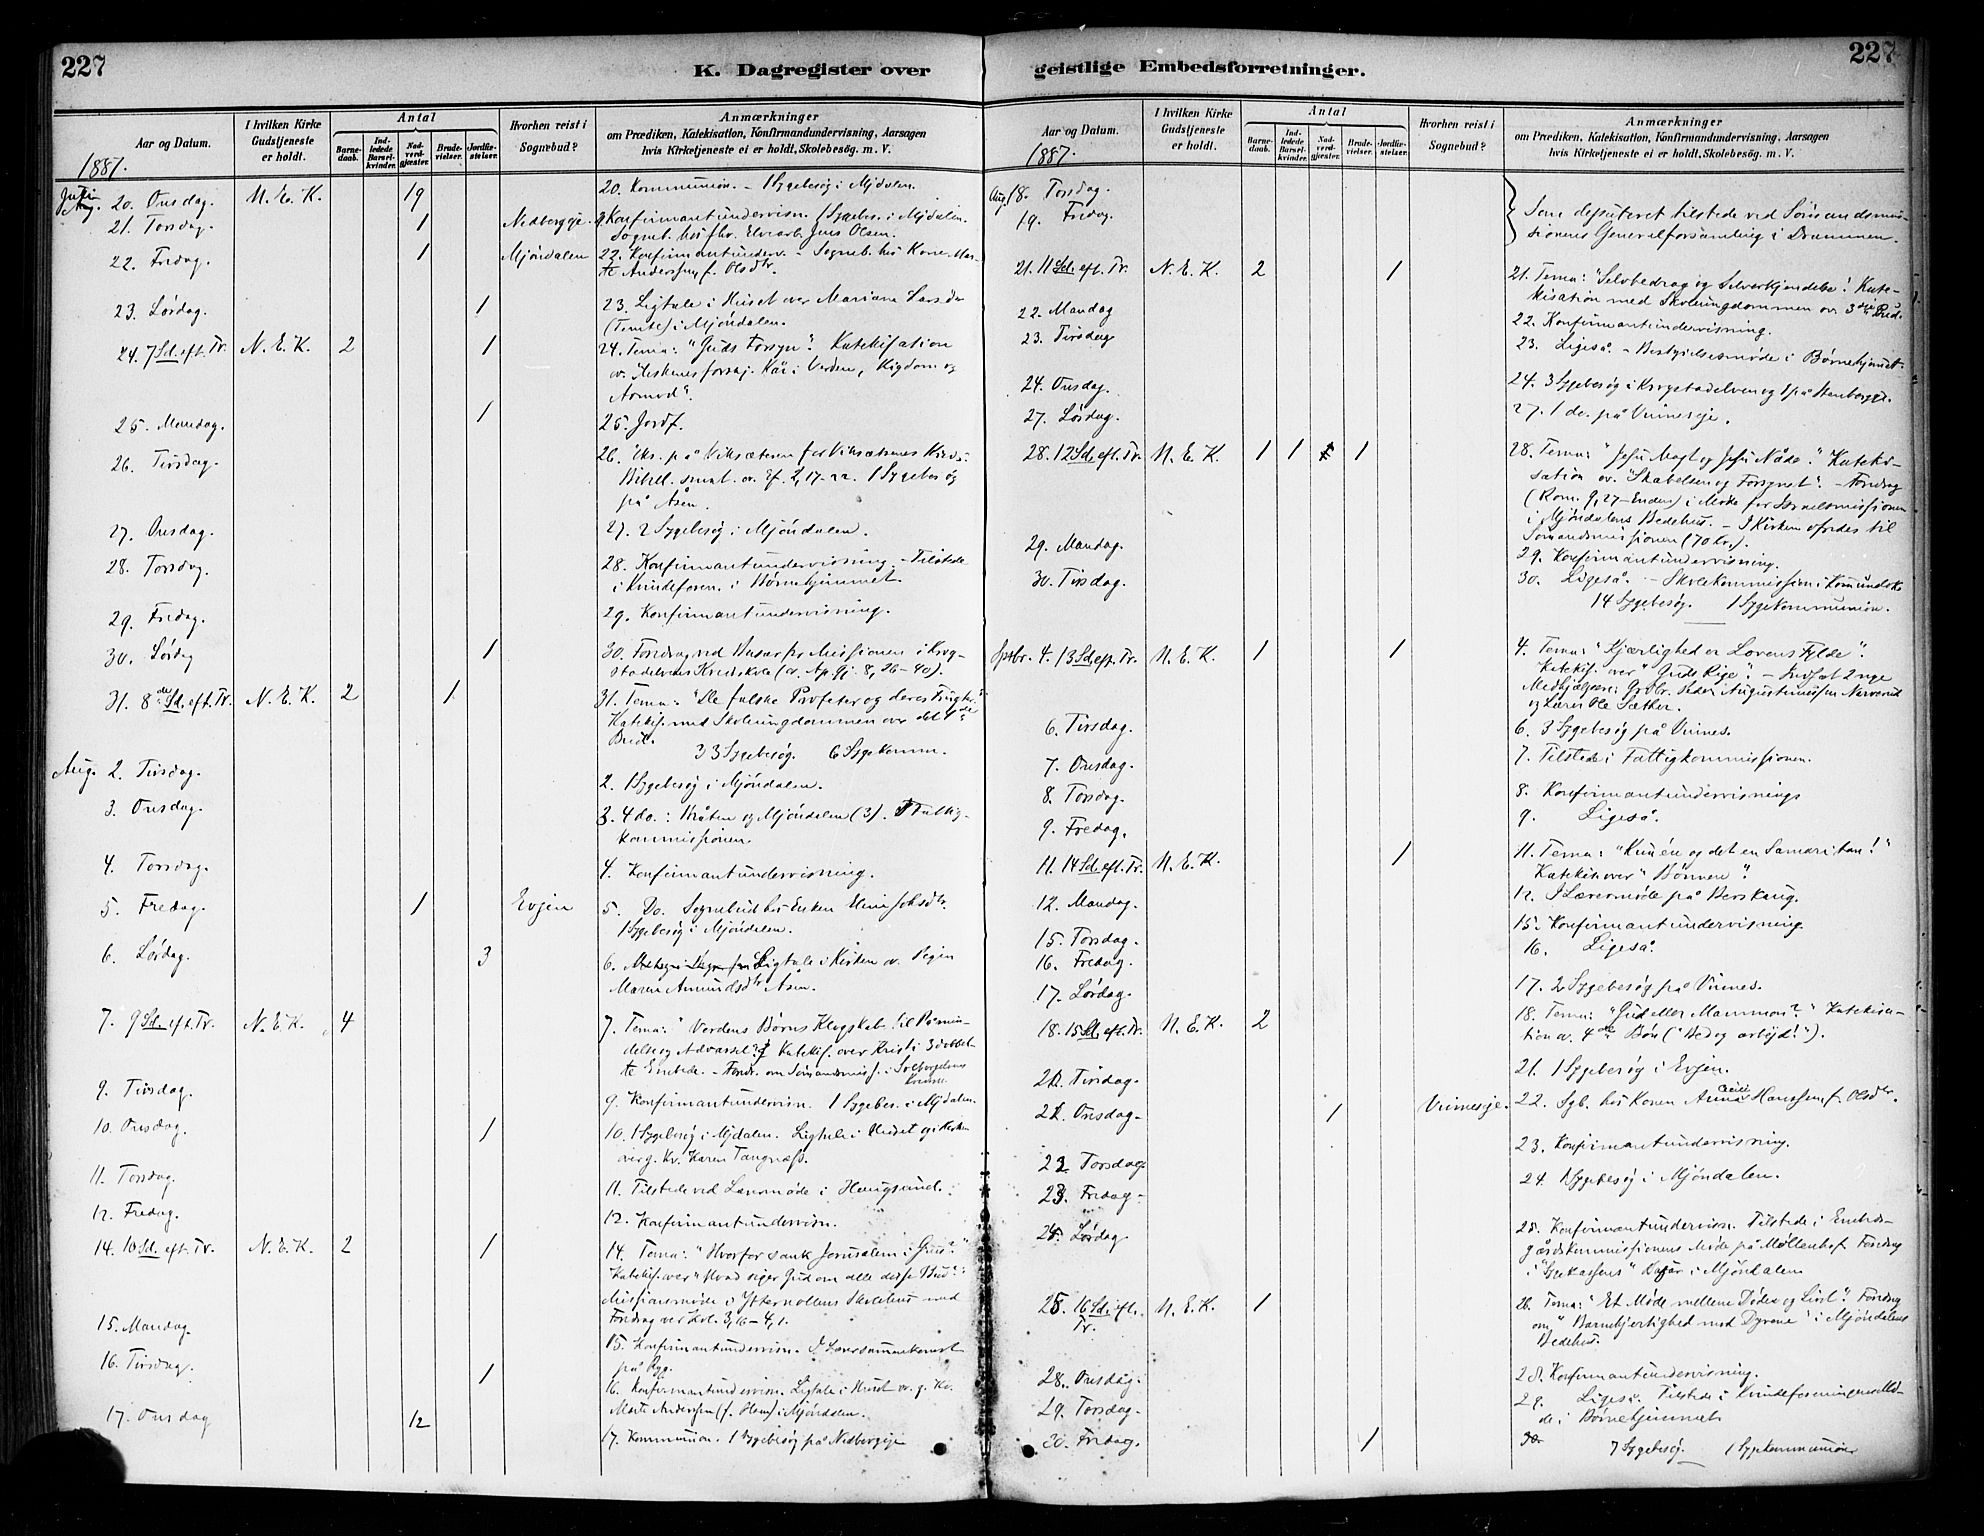 227
K. Dagregister over
Aar og Datum.
I hvilken Kirke
Gudstjeneste
er holdt.
Antal
Barne-
daab.
Ind-
ledede
Barsel-
kvinder.
Nad-
verd-
gjæster.
Brude-
vielser.
Jordfæ-
stelser.
Hvorhen reist i
Sognebud?
Anmærkninger
om Prædiken, Katekisation, Konfirmandundervisning, Aarsagen
hvis Kirketjeneste ei er holdt, Skolebesög. m. V.
1887.
20. Onsdag. N. E. K. 19 20. Kommunion. – 1 Sygebesøg i Mjdalen.
21. Torsdag. 1 Nedbergeje. Konfirmantundervisn. 1 Sygebes. i Mjdalen.
Sogneb. hos Jens Olsen.
22. Fredag. 1 Mjöndalen 22. Konfirmantunderv. – Sogneb. hos Kone
Andersen f. Olsdtr.
23. Lørdag. 1 23. Ligtale i Huset over Mariane Larsdr
i Mjöndalen.
24. 7 Sd. eft. Tr. N. E. K. 2 1 24. Tema: "Guds Forsyn". Katekisation
Kår i Verden, Rigdom og
Armod".
25. Mandag. 1 25. Jordf.
26. Tirsdag. 26.
Ef. 2, 17-22. 1 Sygebesøg
på Åsen.
27. Onsdag. 27. 2 Sygebesøg i Mjöndalen.
28. Torsdag. 28. Konfirmantundervisning. – Tilstede
i Kvindeforen. i Børnehjemmet.
29. Fredag. 29. Konfirmantundervisning.
30. Lørdag 1 30. Foredrag ved Basar for Missionen i Krog-
stadelvens Kredsskole (Ap. Gj. 8, 26-40).
31. 8de Sd. eft. Tr. N. E. K. 2 1 31. Tema: "De falske Profeter og deres Frugter".
Katekis. med Skoleungdommen over det
Bud.
33 Sygebesøg. 6 Sygekomm.
Aug. 2. Tirsdag. 2. 1 Sygebesøg i Mjöndalen.
3. Onsdag. 3. 4 do.: Bråten og Mjöndalen (3). Fattig-
kommissionen.
4. Torsdag. 4. Konfirmantundervisning.
5. Fredag. 1 Evjen 5. Do. Sognebud hos Enken
1 Sygebesøg i Mjöndalen.
6. Lørdag. 3 6. Ligtale i Kirken ov. Pigen
Maren Amundsdtr Åsen.
7. 9 Sd. eft. Tr. N. E. K. 4 7. Tema: "Verdens Børns Klogskab til Påmin-
delse og Advarsel". Katekis. over Kristi 3 dobbel-
te Embede. – Foredr. om Sømandsmiss. i
9. Tirsdag. 9. Konfirmantundervisn. 1 Sygebes. i Mjdalen.
10. Onsdag. 1 10. 1 Sygebesøg i Mjdalen. Ligtale i Huset og i Kirken
over g. Kv. Karen Tangnæss.
11. Torsdag. 11. Tilstede ved Læremøde i Haugsund.
12. Fredag. 12. Konfirmantundervisn.
14. 10 Sd. eft. Tr. N. E. K. 2 1 14. Tema: "Hvorfor sank Jerusalem i Grus?"
Katekis. over "Hvad siger Gud om alle disse Bud?"
Missionsmøde i Ytterkollens Skolehus med
Foredrag over Kol. 3, 16-4, 1.
15. Mandag. 15. Konfirmantundervisn.
på Ryg.
16. Tirsdag. 1 16. Konfirmantundervisn. Ligtale i Huset ov. g. Kv.
Marte Andersen (f. Hem) i Mjöndalen.
17. Onsdag 12 17. Kommunion. 1 Sygebesøg på Nedbergeje
227
geistlige Embedsforretninger.
Aar og Datum.
I hvilken Kirke
Gudstjeneste
er holdt.
Antal
Barne-
daab.
Ind-
ledede
Barsel-
kvinder.
Nad-
verd-
gjæster.
Brude-
vielser.
Jordfæ-
stelser.
Hvorhen reist i
Sognebud?
Anmærkninger
om Prædiken, Katekisation, Konfirmandundervisning, Aarsagen
hvis Kirketjeneste ei er holdt, Skolebesög. m. V.
1887.
Aug. 18. Torsdag.
19. Fredag. Som deputeret tilstede ved Sømandsmis-
sionens Generalforsamling i Drammen.
21. 11 Sd. eft. Tr. N. E. K. 2 1 21. Tema: "Selvbedrag og Selverkjendelse". Kate-
kisation med Skoleungdommen ov. 3die Bud.
22. Mandag 22. Konfirmantundervisning.
23. Tirsdag 23. Ligeså. – Bestyrelsesmøde i Børnehjemmet.
24. Onsdag. 24. 3 Sygebesøg i Krogstadelven og 1 på Stenberget.
27. Lørdag. 27. 1 do. på Vinneseje.
28. 12 Sd. eft. Tr. N. E. K. 1 1 1 28. Tema: "Jesu Magt og Jesu Nåde". Kateki-
sation ov. "Skabelsen og Forsynet". – Foredrag
(Rom. 9, 27-Enden) i Møde for Israelsmissionen
i Mjöndalens Bedehus. – I Kirken ofredes til
Sømandsmissionen (70 kr.).
29. Mandag. 29. Konfirmantundervisning.
30. Tirsdag. 30. Ligeså. – Skolekommission i Komundsk
14 Sygebesøg. 1 Sygekommunion.
Sptbr. 4. 13 Sd. eft. Tr. N. E. K. 1 1 4. Tema: "Kjærlighed er Lovens Fylde".
Katekis. over "Guds Rige". – Indsat 2 nye
Medhjælpere: Grdbr. Peder Augustinussen
og Lærer Ole Sæther.
6. Tirsdag. 6. 3 Sygebesøg på Vinnes.
7. Onsdag. 7. Tilstede i Fattigkommissionen.
8. Torsdag. 8. Konfirmantundervisning
9. Fredag. 9. Ligeså.
11. 14 Sd. eft. Tr. N. E. K. 1 11. Tema: "Kun én og det en Samaritan!"
Katekis. over "Bønnen".
12. Mandag. 12. I Læremøde på Berskaug.
15. Torsdag. 15. Konfirmantundervisning.
16. Fredag. 16. Ligeså.
17. Lørdag. 17. 2 Sygebesøg på Vinnes.
18. 15 Sd. eft. Tr. N. E. K. 2 18. Tema: "Gud eller Mammon?" Katekisa-
tion ov. 4de Bøn ("Bed og arbejd!").
Tirsdag. 21. 1 Sygebesøg i Evjen.
Onsdag. 1 Vinneseje. 22. Sgb. hos Konen Anna Hanssen f. Olsdtr.
22. Torsdag 23. Konfirmantundervisning.
23. Fredag. 24. 1 Sygebesøg i Mjöndalen.
Lørdag 25. Konfirmantundervisn. Tilstede i Embeds-
gårdskommissionens Møde på Møllenhof. Foredrag
i "Sygekassens" Basar i Mjöndalen
25. 16 Sd. eft.
Tr. N. E. K. 1 26. Tema: "Et Møde mellem Døden og Livet". Foredrag
om "Barmhjertighed mod Dyrene" i Mjöndalens
Bedehus.
28. Onsdag. 28. Konfirmantundervisning.
29. Torsdag. 29. Ligeså. Tilstede i Kvindeforeningens
i Børnehjemmet.
30. Fredag. 1 7 Sygebesøg. 1 Sygekommunion